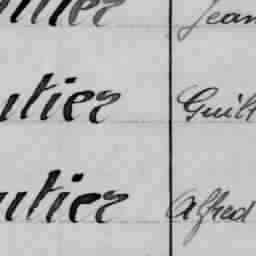 utier Jean
utier Guill
utier Alfred